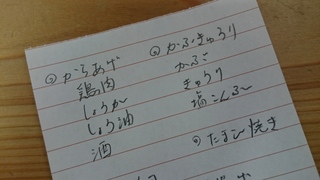 ◎からあげ
鶏肉
しょうが
しょう油
酒
◎かぶきゅうり
かぶ
きゅうり
塩こんぶ
◎たまご焼き